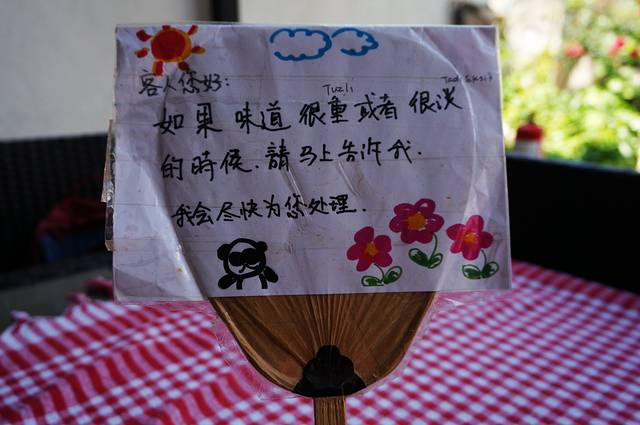 客人您好:
Tuzli Tadi Eksik
如果 味道 很重 或者 很淡
的時候. 請马上告许我.
我会尽快为您处理.